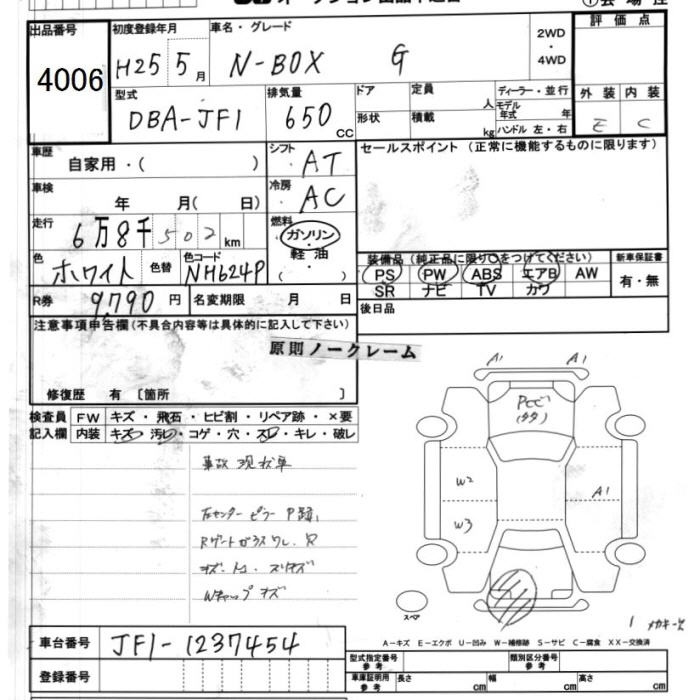 出品番号
4006
初度登録年月
H25 5月
車名・グレード
N-BOX G
2WD
・
4WD
評価点
外装 内装
E C
型式
DBA-JF1
排気量
650 CC
ドア
形状
定員 人
積載 kg
ディーラー・並行
モデル年式 年
ハンドル 左・右
車歴
自家用・( )
シフト
AT
セールスポイント (正常に機能するものに限ります)
車検
年 月( 日)
冷房
AC
走行
6万8千502km
燃料
ガソリン
・
軽油
・( )
色
ホワイト
色替
色コード
NH624P
装備品 (純正品に限り○をつけてください)
PS PW ABS エアB AW
SR ナビ TV カワ
新車保証書
有・無
R券 9,790円
名変期限 月 日
後日品
注意事項申告欄(不具合内容等は具体的に記入して下さい)
原則ノークレーム
修復歴 有 [箇所 ]
検査員記入欄
FW キズ・飛石・ヒビ割・リペア跡・×要
内装 キズ・汚レ・コゲ・穴・スレ・キレ・破レ
事故現状車
右センターピラーP跡、
Rゲートガラスワレ、
Wキャップキズ
A1 A1
W2
A1
W3
スペア
A-キズ E-エクボ U-凹み W-補修跡 S-サビ C-腐食 XX-交換済
車台番号 JF1-1237454
登録番号
型式指定番号
参考
類別区分番号
参考
車庫証明用
参考
長さ cm
幅 cm
高さ cm